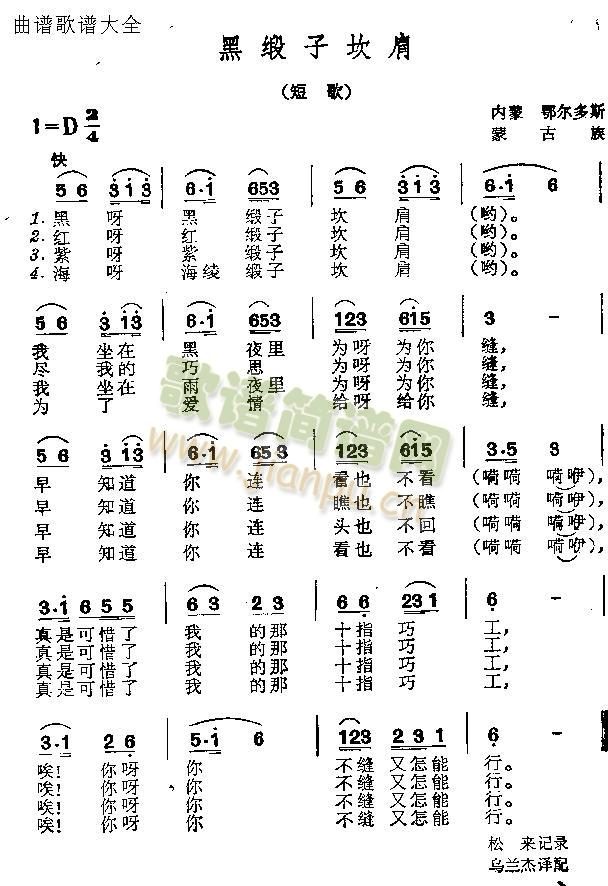 曲谱歌谱大全
黑缎子坎肩
(短 歌)
1=D 2/4
内蒙 鄂尔多斯
蒙古族
快
5 6 3 1 3 | 6·1 653 | 5 6 3 1 3 | 6·1 6 |
1. 黑呀 黑缎子 坎肩 (哟)。
2. 红呀 红缎子 坎肩 (哟)。
3. 紫呀 紫缎子 坎肩 (哟)。
4. 海呀 海绫缎子 坎肩 (哟)。
5 6 3 13 | 6·1 653 | 123 615 | 3 - |
我坐在 黑夜里 为呀为你 缝,
尽我的 巧思 为呀为你 缝,
我坐在 雨夜里 为呀为你 缝,
为了 爱情 给呀给你 缝,
5 6 3 13 | 6·1 653 | 123 615 | 3·5 3 |
早知道 你连 看也不看 (嗬嗬 嗬咿)
早知道 你连 瞧也不瞧 (嗬嗬 嗬咿)
早知道 你连 头也不回 (嗬嗬 嗬咿)
早知道 你连 看也不看 (嗬嗬 嗬咿)
3·1 6 5 5 | 6 3 2 3 | 6 6 231 | 6 - |
真是可惜了 我的那 十指巧 工,
真是可惜了 我的那 十指巧 工,
真是可惜了 我的那 十指巧 工,
真是可惜了 我的那 十指巧 工,
3·1 2 6 | 5·1 6 | 123 2 3 1 | 6 -
唉! 你呀 你 不缝又怎能 行。
唉! 你呀 你 不缝又怎能 行。
唉! 你呀 你 不缝又怎能 行。
唉! 你呀 你 不缝又怎能 行。
松来记录
乌兰杰译配
歌谱简谱网
www.jianpu.cn